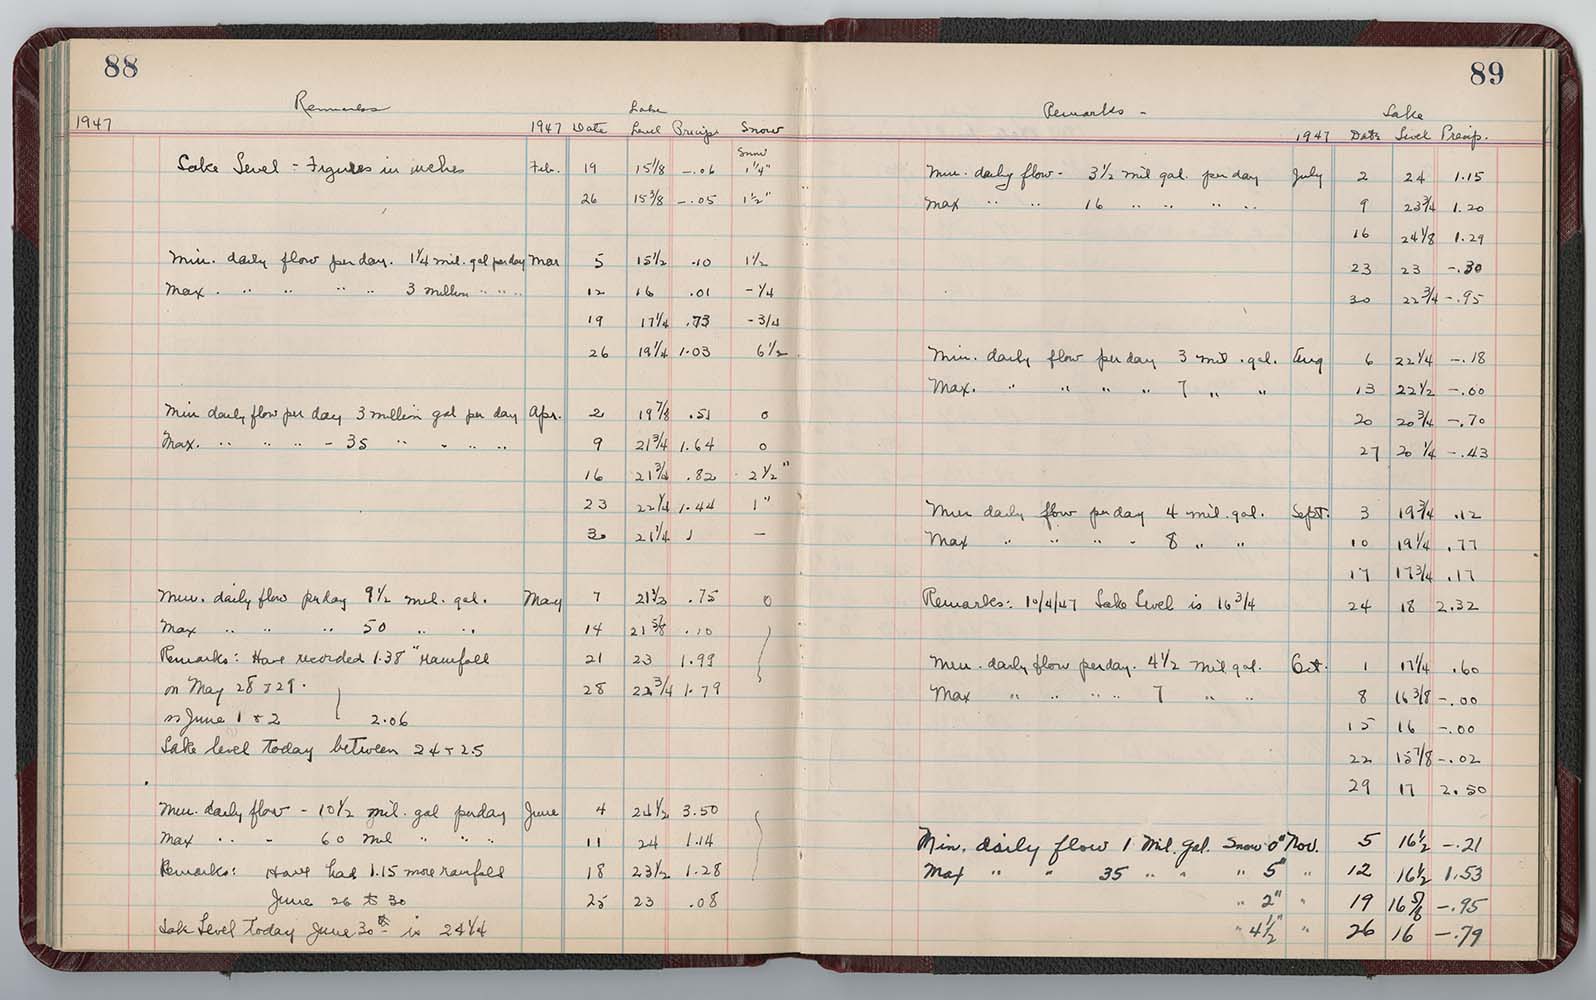 88
Remarks Lake
1947 1947 Date Level Precips Snow
Snow
Lake Level - Figures in inches Feb. 19 15 1/8 -.06 1 1/4"
26 15 3/8 -.05 1 1/2"
Min. daily flow per day. 1 1/4 mil. gal per day Mar 5 15 1/2 .10 1 1/2
Max. " " " " 3 million " " " 12 16 .01 - 1/4
19 17 1/4 .73 - 3/4
26 19 1/4 1.03 6 1/2
Min daily flow per day 3 million gal per day Apr. 2 19 7/8 .51 0
Max. " " " - 35 " " " " 9 21 3/4 1.64 0
16 21 3/4 .82 2 1/2"
23 22 1/4 1.44 1"
30 21 1/4 1 -
Min. daily flow per day 9 1/2 mil. gal. May 7 21 1/2 .75 0
Max " " " 50 " " 14 21 5/8 .10
Remarks: Have recorded 1.38" rainfall 21 23 1.99
on May 28 & 29. 28 22 3/4 1.79
on June 1 & 2 2.06
Lake level today between 24 & 25
Min. daily flow - 10 1/2 mil. gal per day June 4 24 1/2 3.50
Max " " - 60 mil " " " 11 24 1.14
Remarks: Have had 1.15 more rainfall 18 23 1/2 1.28
June 26 to 30 25 23 .08
Lake Level Today June 30th is 24 1/4
89
Remarks - Lake
1947 Date Level Precip.
Min. daily flow - 3 1/2 mil gal. per day July 2 24 1.15
Max " " 16 " " " " 9 23 3/4 1.20
16 24 1/8 1.29
23 23 -.30
30 22 3/4 -.95
Min. daily flow per day 3 mil. gal. Aug 6 22 1/4 -.18
Max. " " " " 7 " " 13 22 1/2 -.00
20 20 3/4 -.70
27 20 1/4 -.43
Min daily flow per day 4 mil. gal. Sept. 3 19 3/4 .12
Max " " " " 8 " " 10 19 1/4 .77
17 17 3/4 .17
Remarks: 10/4/47 Lake Level is 16 3/4 24 18 2.32
Min. daily flow per day. 4 1/2 mil gal. Oct. 1 17 1/4 .60
Max " " " " 7 " " 8 16 3/8 -.00
15 16 -.00
22 15 7/8 -.02
29 17 2.50
Min. daily flow 1 Mil. gal. Snow 0" Nov. 5 16 1/2 -.21
Max " " 35 " " " 5" " 12 16 1/2 1.53
" 2" " 19 16 5/8 -.95
" 4 1/2" " 26 16 -.79